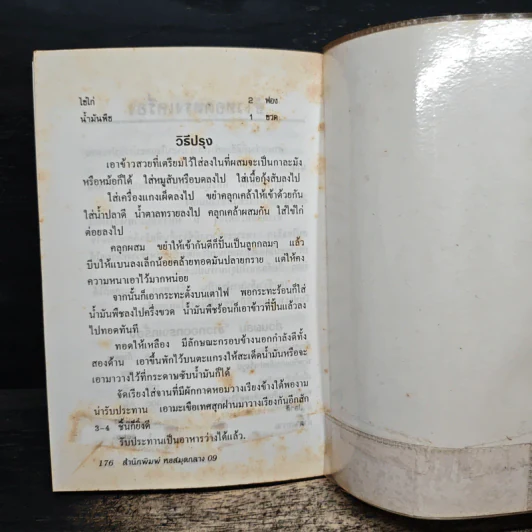 ไข่ไก่ 2 ฟอง
น้ำมันพืช 1 ขวด
วิธีปรุง
เอาข้าวสวยที่เตรียมไว้ใส่ลงในที่ผสมจะเป็นกาละมัง
หรือหม้อก็ได้ ใส่หมูสับหรือบดลงไป ใส่เนื้อกุ้งสับลงไป
ใส่เครื่องแกงเผ็ดลงไป ขยำคลุกเคล้าให้เข้าด้วยกัน
ใส่น้ำปลาดี น้ำตาลทรายลงไป คลุกเคล้าผสมกัน ใส่ไข่ไก่
ต่อยลงไป
คลุกผสม ขยำให้เข้ากันดีก็ปั้นเป็นลูกกลมๆ แล้ว
บีบให้แบนลงเล็กน้อยคล้ายทอดมันปลายกราย แต่ให้คง
ความหนาเอาไว้มากหน่อย
จากนั้นก็เอากระทะตั้งบนเตาไฟ พอกระทะร้อนก็ใส่
น้ำมันพืชลงไปครึ่งขวด น้ำมันพืชร้อนก็เอาข้าวที่ปั้นแล้วลง
ไปทอดทันที
ทอดให้เหลือง มีลักษณะกรอบข้างนอกกำลังดีทั้ง
สองด้าน เอาขึ้นพักไว้บนตะแกรงให้สะเด็ดน้ำมันหรือจะ
เอามาวางไว้ที่กระดาษซับน้ำมันก็ได้
จัดเรียงใส่จานที่มีผักกาดหอมวางเรียงข้างใต้พองาม
น่ารับประทาน เอามะเขือเทศสุกฝานมาวางเรียงกันอีกสัก
3-4 ชิ้นก็ยิ่งดี
รับประทานเป็นอาหารว่างได้แล้ว.
176 สำนักพิมพ์ หอสมุดกลาง 09